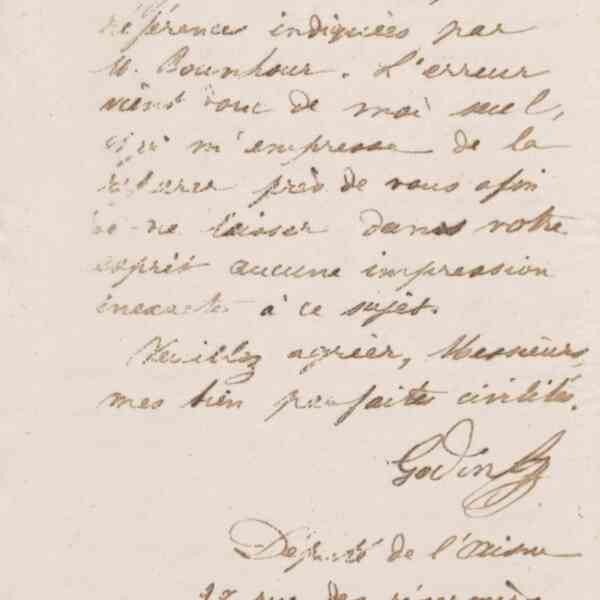 références indiquées par
M. Bounhour. L'erreur
vient donc de moi seul,
qui m'empresse de la
réparer près de vous afin
de ne laisser dans votre
esprit aucune impression
inexacte à ce sujet.
Veuillez agréer, Messieurs,
mes bien parfaites civilités.
Godin
Député de l'Aisne
28 rue des